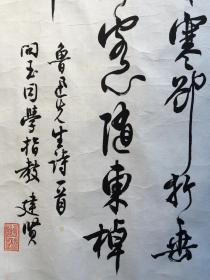 寒卻折垂
客心隨東棹
魯迅先生詩一首
玉同學指教 建賢